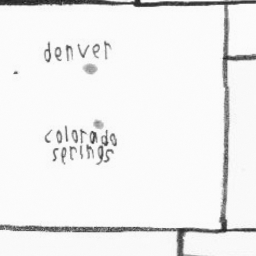 denver
colorado
serings